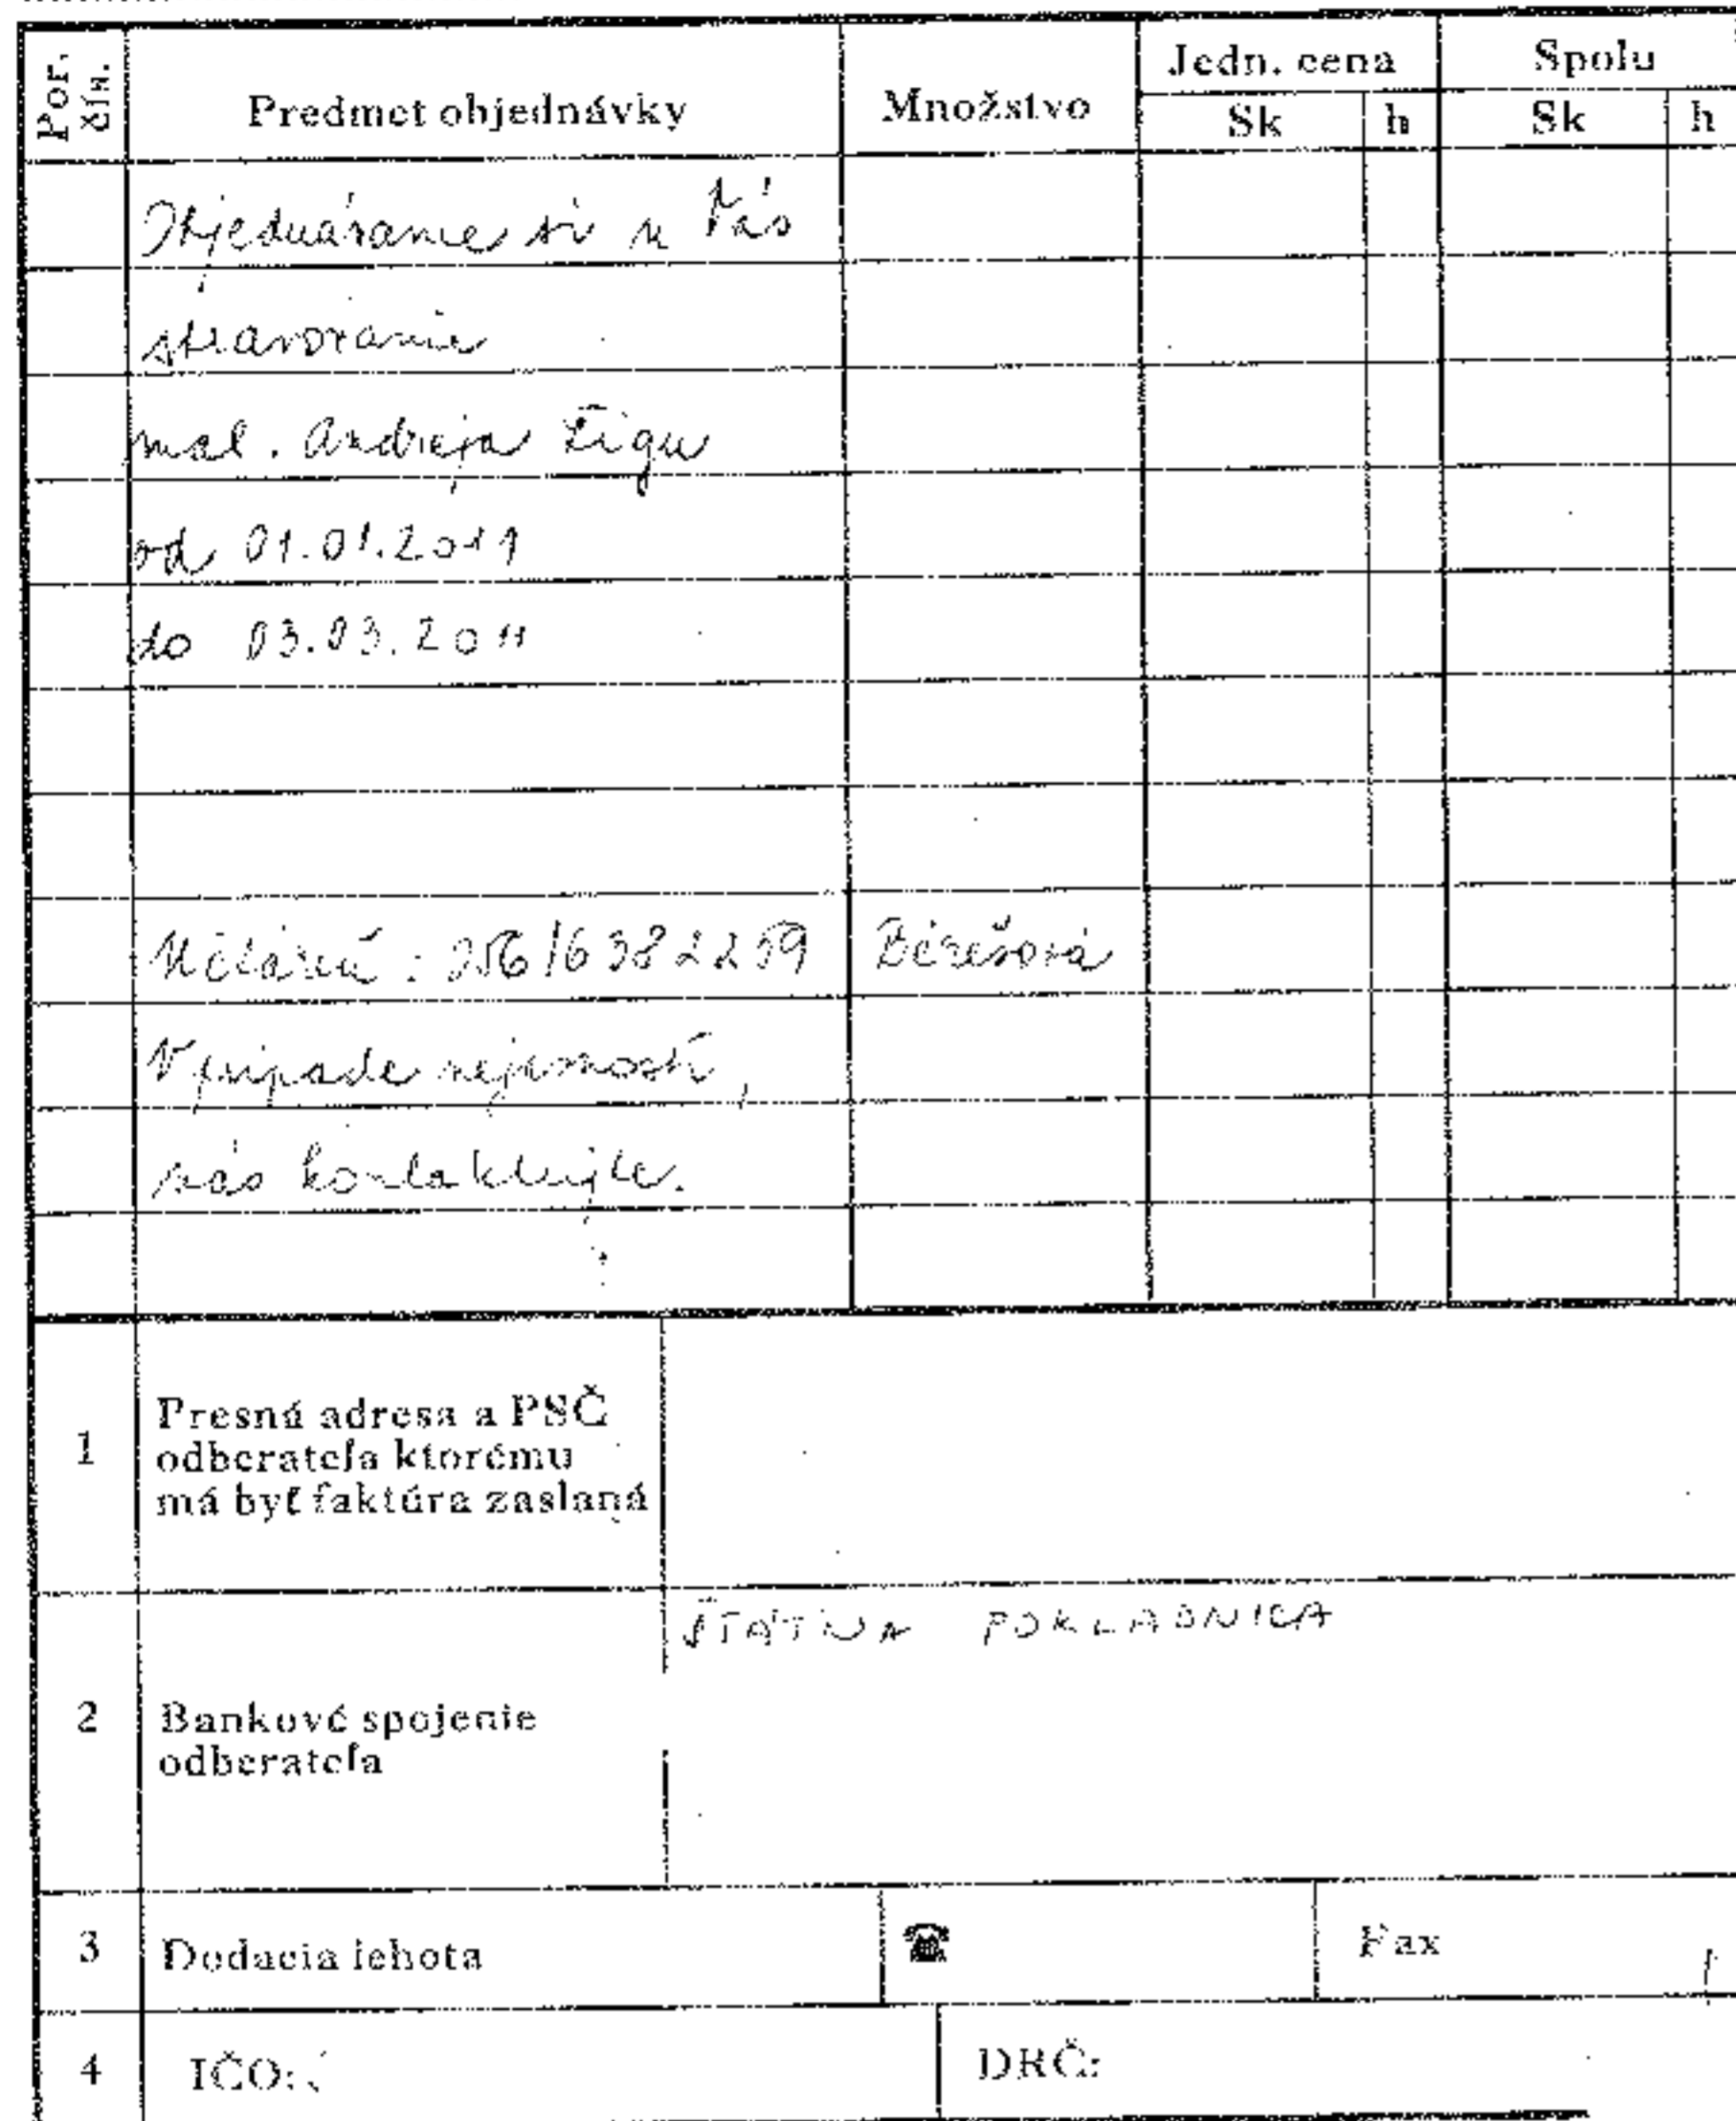 Por. čís. Predmet objednávky Množstvo Jedn. cena Spolu
Sk h Sk h
Objednávame si u Vás
stravovanie
mal. Andreja Žigu
od 01.01.2011
do 03.03.2011
056/6382259 Bérešová
V prípade nejasností,
nás kontaktujte.
1 Presná adresa a PSČ
odberateľa ktorému
má byť faktúra zaslaná
ŠTÁTNA POKLADNICA
2 Bankové spojenie
odberateľa
3 Dodacia lehota ☎ Fax
4 IČO: DRČ: